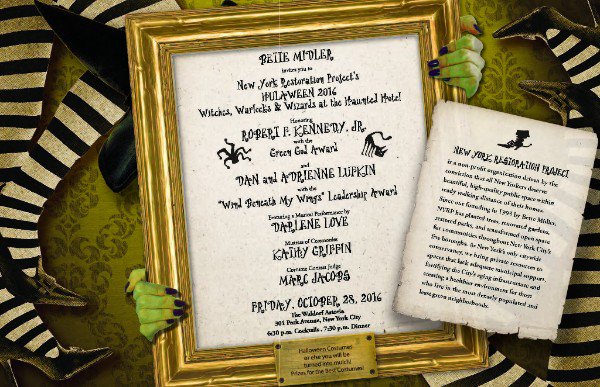 BETTE MIDLER
invites you to
New York Restoration Project's
HULAWEEN 2016
Witches, Warlocks & Wizards at the Haunted Hotel!
Honoring
ROBERT F. KENNEDY, JR.
with the
Green God Award
and
DAN and ADRIENNE LUFKIN
with the
"Wind Beneath My Wings" Leadership Award
Featuring a Musical Performance by
DARLENE LOVE
Mistress of Ceremonies
KATHY GRIFFIN
Costume Contest Judge
MARC JACOBS
FRIDAY, OCTOBER 28, 2016
The Waldorf Astoria
301 Park Avenue, New York City
6:30 p.m. Cocktails . 7:30 p.m. Dinner
Halloween Costumes
or else you will be
turned into mulch!
Prizes for the Best Costumes!
NEW YORK RESTORATION PROJECT
is a non-profit organization driven by the
conviction that all New Yorkers deserve
beautiful, high-quality public space within
ready walking distance of their homes.
Since our founding in 1995 by Bette Midler,
NYRP has planted trees, renovated gardens,
restored parks, and transformed open space
for communities throughout New York City's
five boroughs. As New York's only citywide
conservancy, we bring private resources to
spaces that lack adequate municipal support,
fortifying the City's aging infrastructure and
creating a healthier environment for those
who live in the most densely populated and
least green neighborhoods.